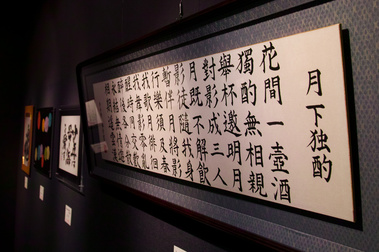 月下独酌
花間一壺酒
獨酌無相親
舉杯邀明月
對影成三人
月既不解飲
影徒隨我身
暫伴月將影
行樂須及春
我歌月徘徊
我舞影零亂
醒時同交歡
醉後各分散
永結無情遊